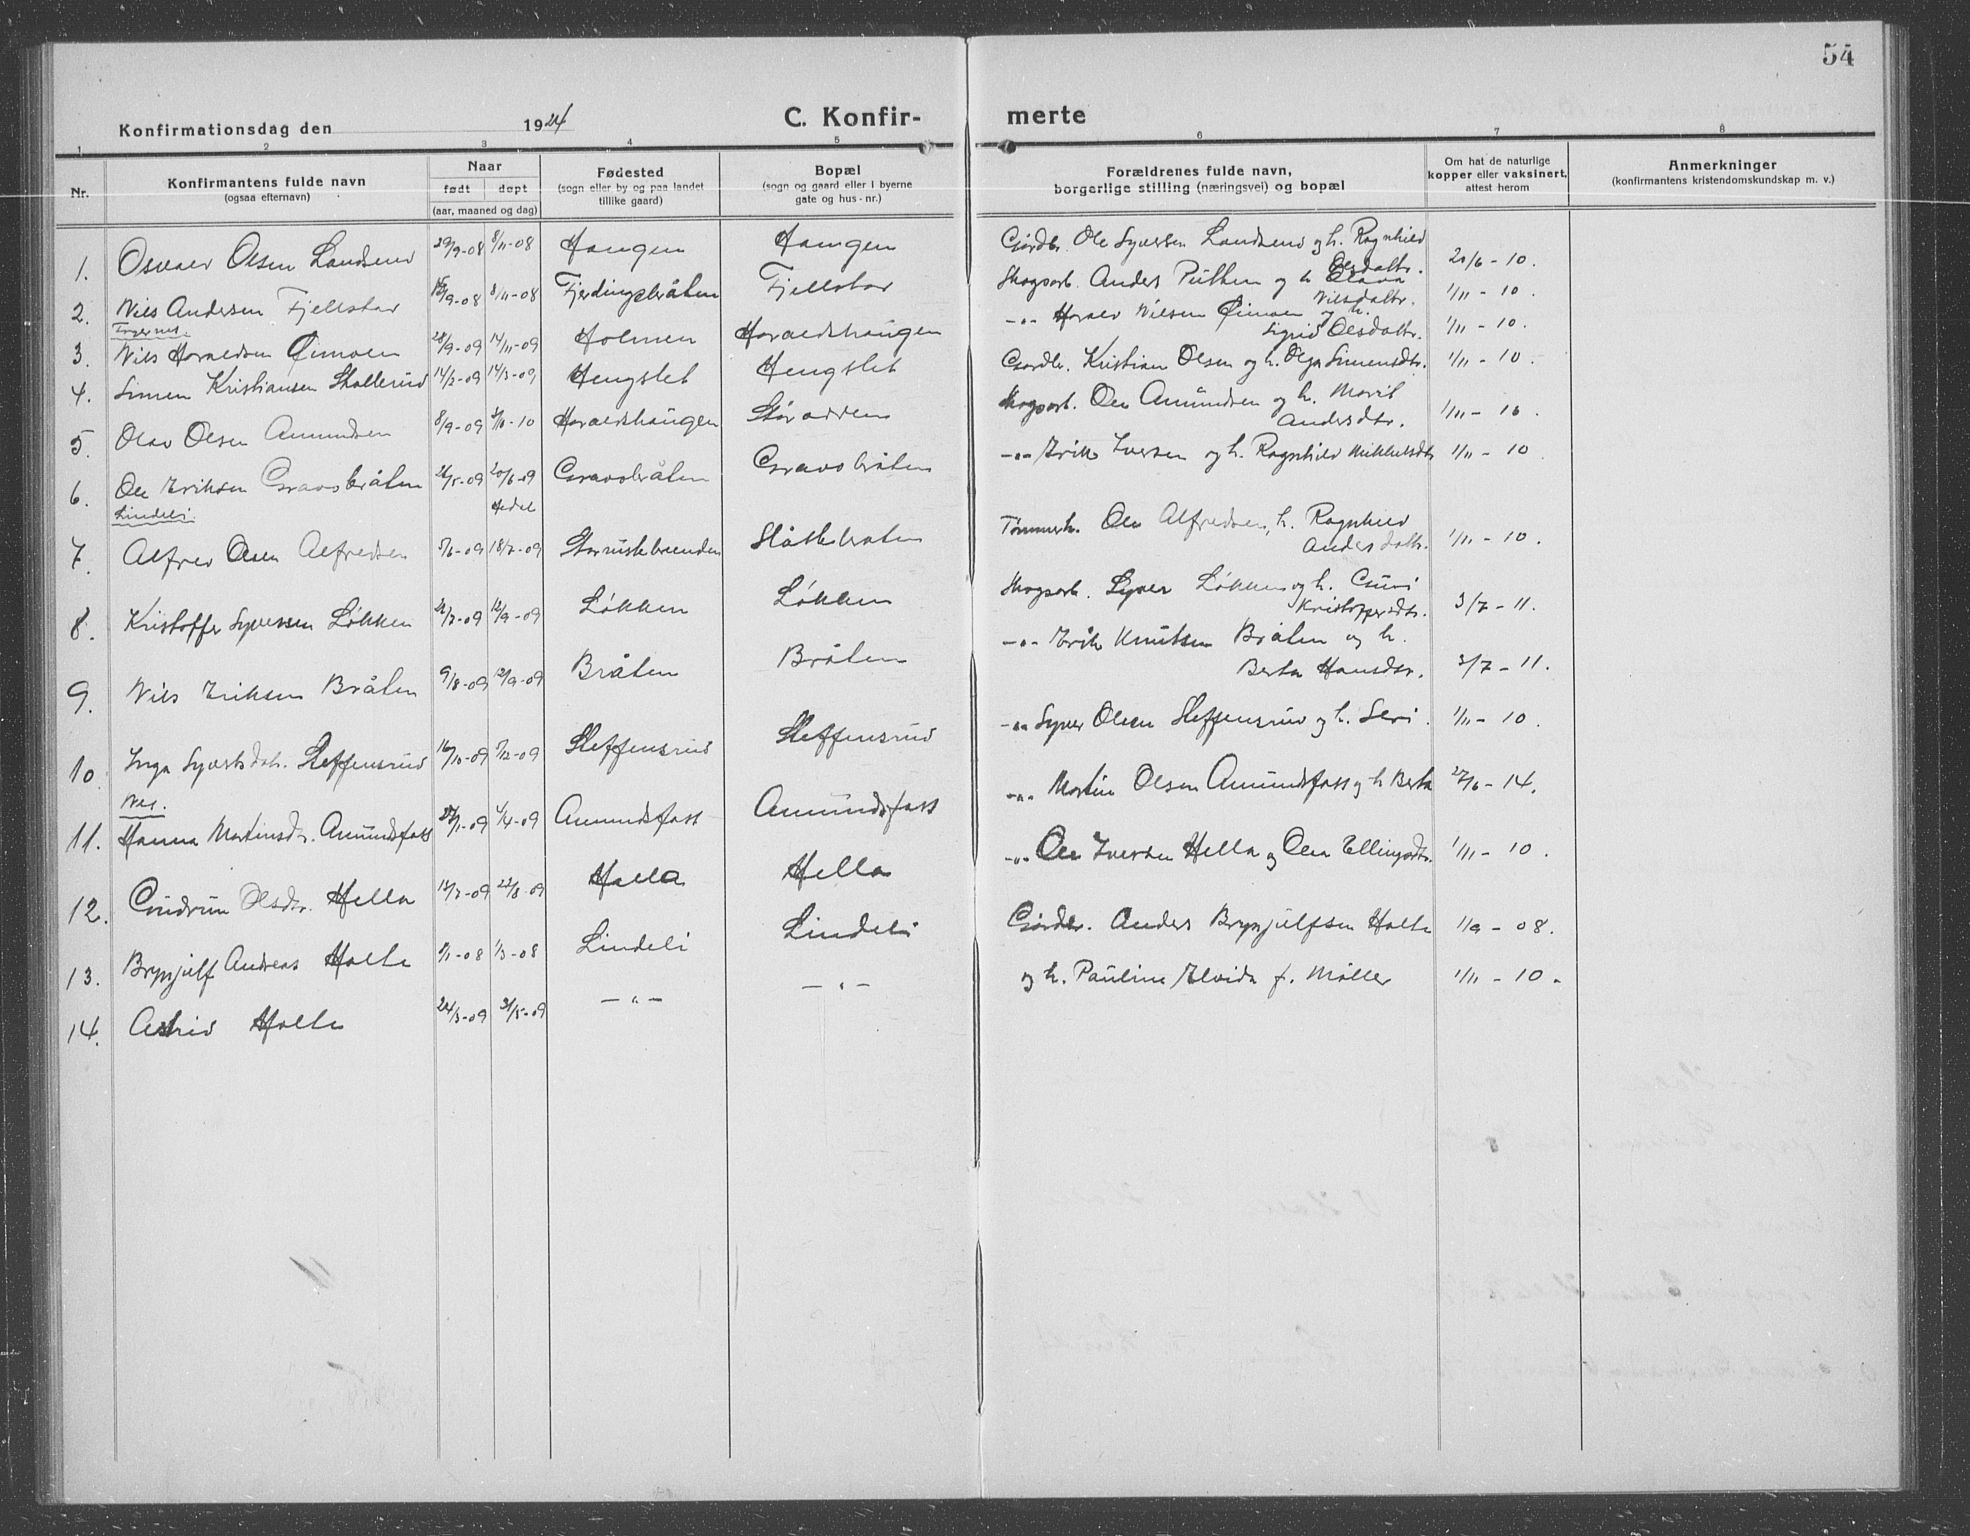 54
Konfirmationsdag den 1924
C. Konfir-
merte
1 2 3 4 5 6 7 8
Nr.
Konfirmantens fulde navn
(ogsaa efternavn)
Naar
født døpt
(aar, maaned og dag)
Fødested
(sogn eller by og paa landet
tillike gaard)
Bopæl
(sogn og gaard eller i byerne
gate og hus-nr.)
Forældrenes fulde navn,
borgerlige stilling (næringsvei) og bopæl
Om hat de naturlige
kopper eller vaksinert,
attest herom
Anmerkninger
(konfirmantens kristendomskundskap m. v.)
1. Osvald Olsen Landsend 29/9-08 8/11-08 Haugen Haugen Gårdbr. Ole Syversen Landsend og h. Ragnhild Olsdatr. 20/6-10.
2. Nils Andersen Fjellstad 15/9-08 8/11-08 Fjerdingsbråten Fjellstad Skogsarb. Anders Putten og h. Nilsdatr. 1/11-10.
3. Nils Haraldsen Øimoen 28/9-09 14/11-09 Holmen Haraldshaugen -"- Harald Nilsen Øimoen og h. Sigrid Olsdatr. 1/11-10.
4. Simen Kristiansen Skollerud 14/2-09 14/3-09 Hengslet Hengslet Gardbr. Kristian Olsen og h. Olga Simensdtr. 1/11-10.
5. Olav Olsen Amundsen 8/9-09 10-10 Haraldshaugen Skogsarb. Ole Amundsen og h. Marit Andersdtr. 1/11-10.
6. Ole Eriksen Gravsbråten 26/5-09 20/6-09 Gravsbråten Gravsbråten -"- Erik Iversen og h. Ragnhild Mikkelsdtr 1/11-10.
Lindeli Hedal
7. Alfred Olsen Alfredsen 5/6-09 18/7-09 Slåttebråten Tømmerh. Ole Alfredsen, h. Ragnhild Andersdatr. 1/11-10.
8. Kristoffer Syversen Løkken 12/9-09 Løkken Løkken Skogsarb. Syver Løkken og h. Guri Kristoffersdtr. 3/7-11.
9. Nils Eriksen Bråten 9/8-09 12/9-09 Bråten Bråten -"- Erik Knutsen Bråten og h. Berta Hansdtr. 3/7-11.
10. Inga Syversdatr. Steffensrud 16/10-09 5/12-09 Steffensrud Steffensrud -"- Syver Olsen Steffensrud og h. Siri. 1/11-10.
Nes.
11. Hanna Martinsdr. Amundsfast 4/4-09 Amundsfast Amundsfast -"- Martin Olsen Amundsfast og h Berta 27/6-14.
12. Gudrun Olsdr. Hella 12/7-09 22/8-09 Hella Hella -"- Ole Iversen Hella og Olea Ellingsdtr. 1/11-10.
13. Brynjulf Andreas Holte 1/1-08 1/3-08 Lindeli Lindeli Gårdbr. Anders Brynjulfsen Holte 1/9-08.
14. Astrid Holte 24/3-09 31/5-09 -"- -"- og h. Pauline Elvida f. Møller 1/11-10.